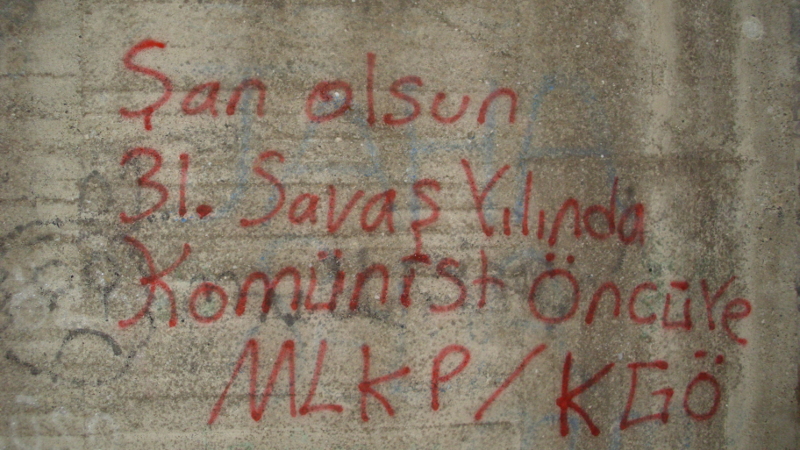 Şan olsun
31. Savaş Yılında
Komünist Öncüye
MLKP/KGÖ